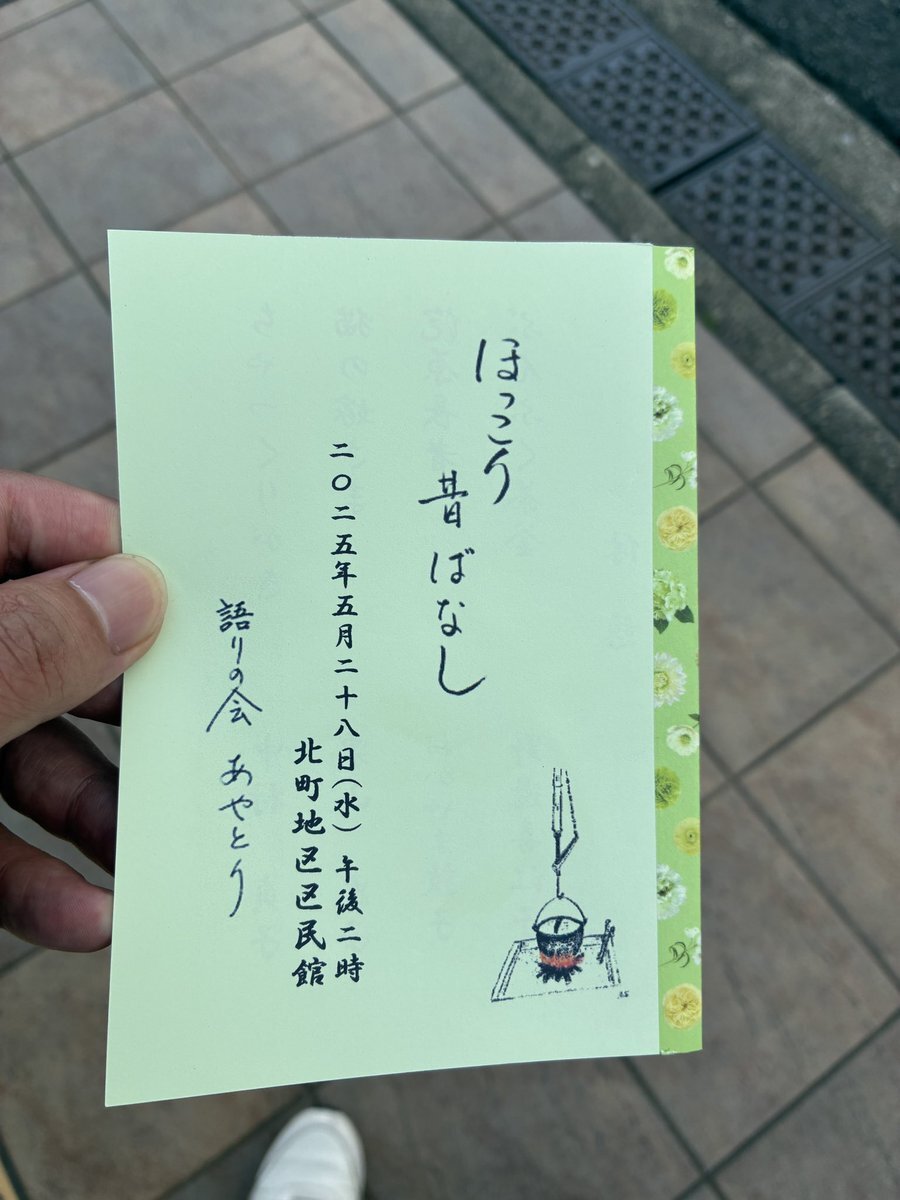 ほっこり
昔ばなし
二〇二五年五月二十八日(水) 午後二時
北町地区区民館
語りの会 あやとり